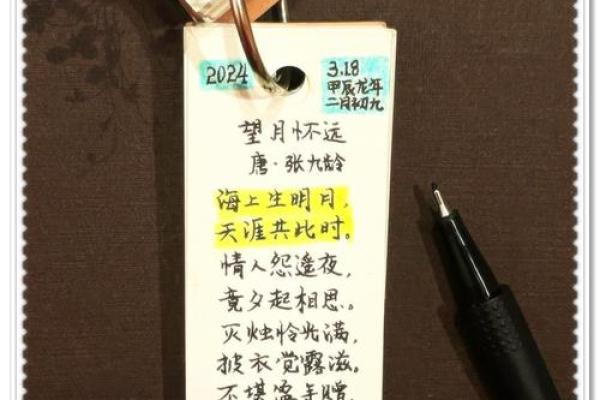 2024
3.18
甲辰龙年
二月初九
望月怀远
唐·张九龄
海上生明月,
天涯共此时。
情人怨遥夜,
竟夕起相思。
灭烛怜光满,
披衣觉露滋。
不堪盈手赠,